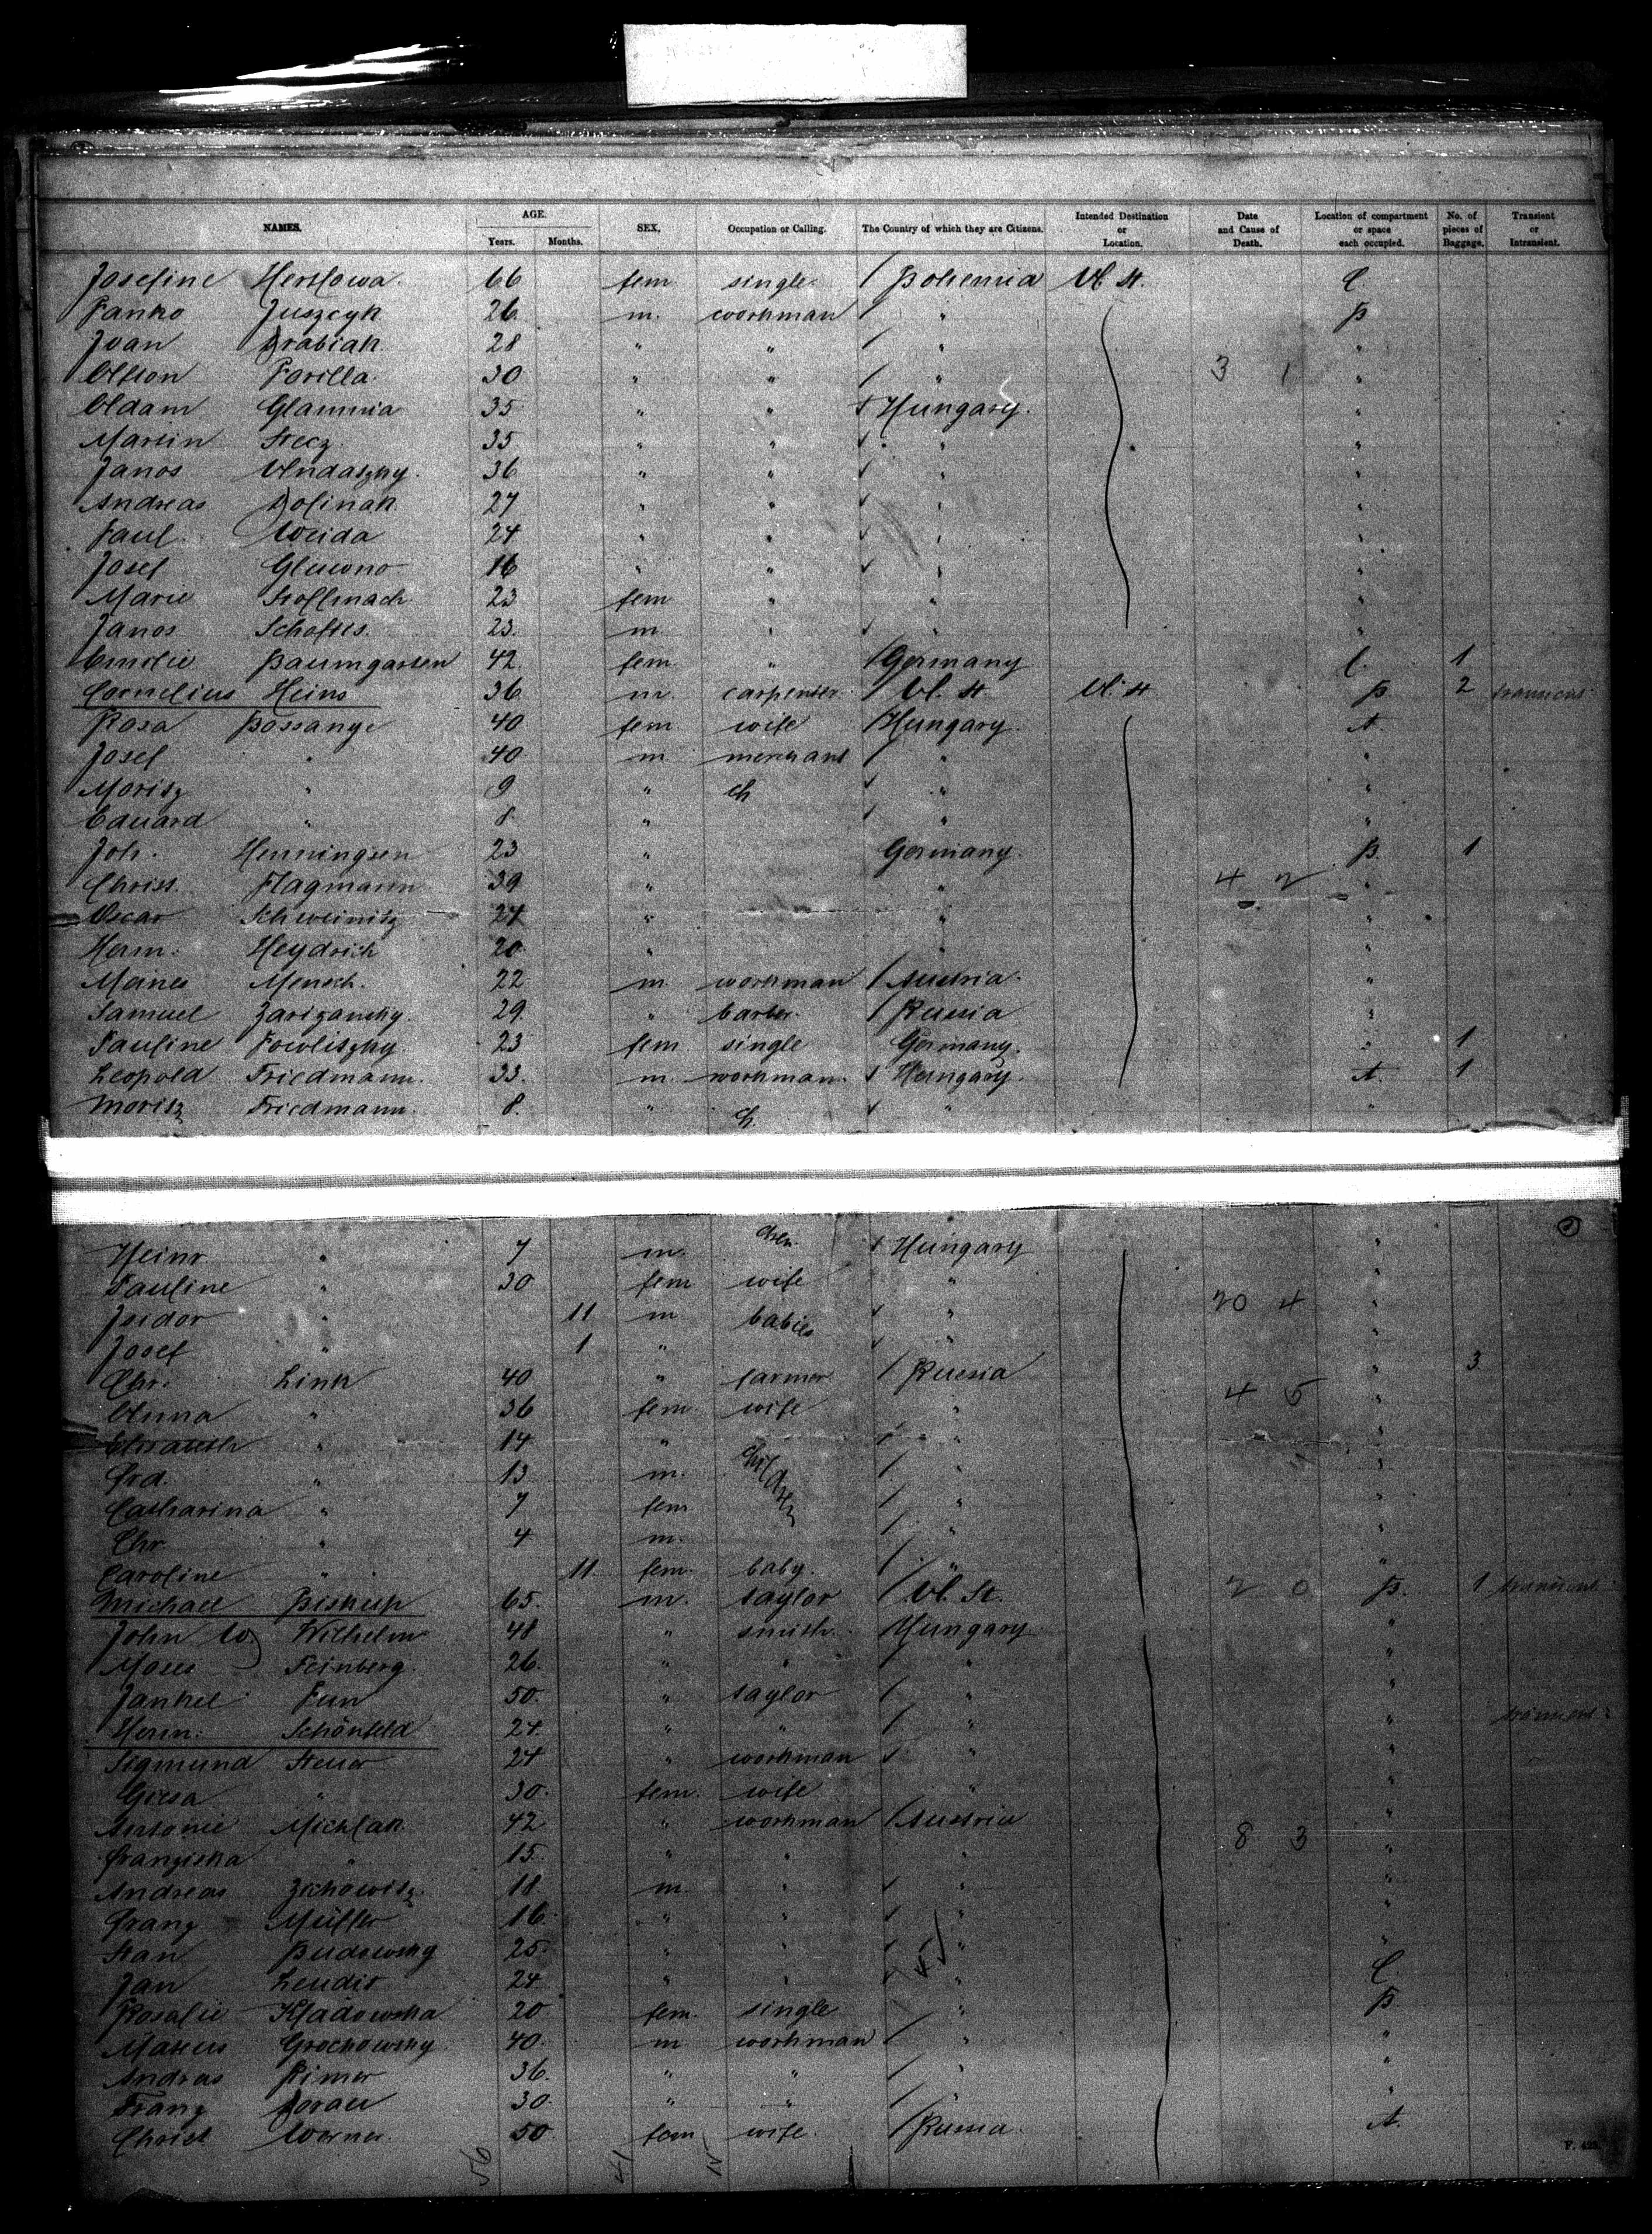 NAMES. AGE. Years. Months. SEX. Occupation or Calling. The Country of which they are Citizens. Intended Destination or Location. Date and Cause of Death. Location of compartment or space each occupied. No. of pieces of Baggage. Transient or Intransient.
Josefine 66 fem single / Bohemia U. St. C.
Panko Juszcyk 26 m. workman / " B
Joan Drabiak 28 " " / " "
Parilla 30 " " / " 3 1 "
Adam Glamnia 35 " " Hungary. "
Martin Stecz 35 " " " "
Janos Andaszky 36 " " " "
Andreas Dolinak 27 " " " "
Paul Weida 24 " " " "
Josef Glucono 16 " " " "
Marie 23 fem " " "
Janos 23. m " " "
Emilie Baumgarten 42 fem " / Germany C. 1
Cornelius Heins 36 m. carpenter / U. St. U. St. B 2 transient
Rosa Bossange 40 fem wife / Hungary. A.
Josef " 40 m merchant / " "
Moritz " 9 " ch " "
Eduard " 8 " " "
Joh. Henningsen 23 " Germany. B. 1
Christ. Flagmann 39 " " 4 2 "
Oscar Schweinitz 24 " " "
Herm. Heydrich 20 " " "
Mensch. 22 m workman / Austria. "
Samuel Zarizansky. 29 " barber / Russia "
Pauline Powliszky 23 fem single Germany. " 1
Leopold Friedmann. 33. m. workman. Hungary. A. 1
Moritz Friedmann. 8. " ch. " "
Heinr. " 7 m. Hungary "
Pauline " 30 fem wife " "
Isidor " 11 m babies " 20 4 "
Josef " 1 " " "
Chr. Link 40 " farmer / Russia " 3
Anna " 36 fem wife " 4 5 "
Elisabeth " 14 " / " "
Frd. " 13 m. children / " "
Catharina " 7 fem / " "
Chr. " 4 m. / " "
Caroline " 11 fem baby. / " "
Michael Biskup 65. m. taylor / U. St. 2 0 B. 1 transient
John W. Wilhelm 48 " smith Hungary "
Moses Feinberg. 26. " " / " "
Jankel Fun 50. " taylor / " "
Herm. Schönfeld 24. " " / " " transient
Sigmund Steuer 24 " workman " "
" 30. fem. wife " "
Antonie Michlak 42 " workman / Austria " 
Franziska " 15. " " " 8 3 "
Andreas Zechowitz. 18 m " " "
Franz Müller 16. " " " "
Budowsky 25. " " " "
Jan 24 " " " C
Rosalie Kladowska 20 fem. single / " B
Grochowsky. 40. m workman / " "
Andreas 36. " " / " "
Franz 30. " " / " "
Christ Werner. 50 fem wife. / Russia. A.
56 41 15